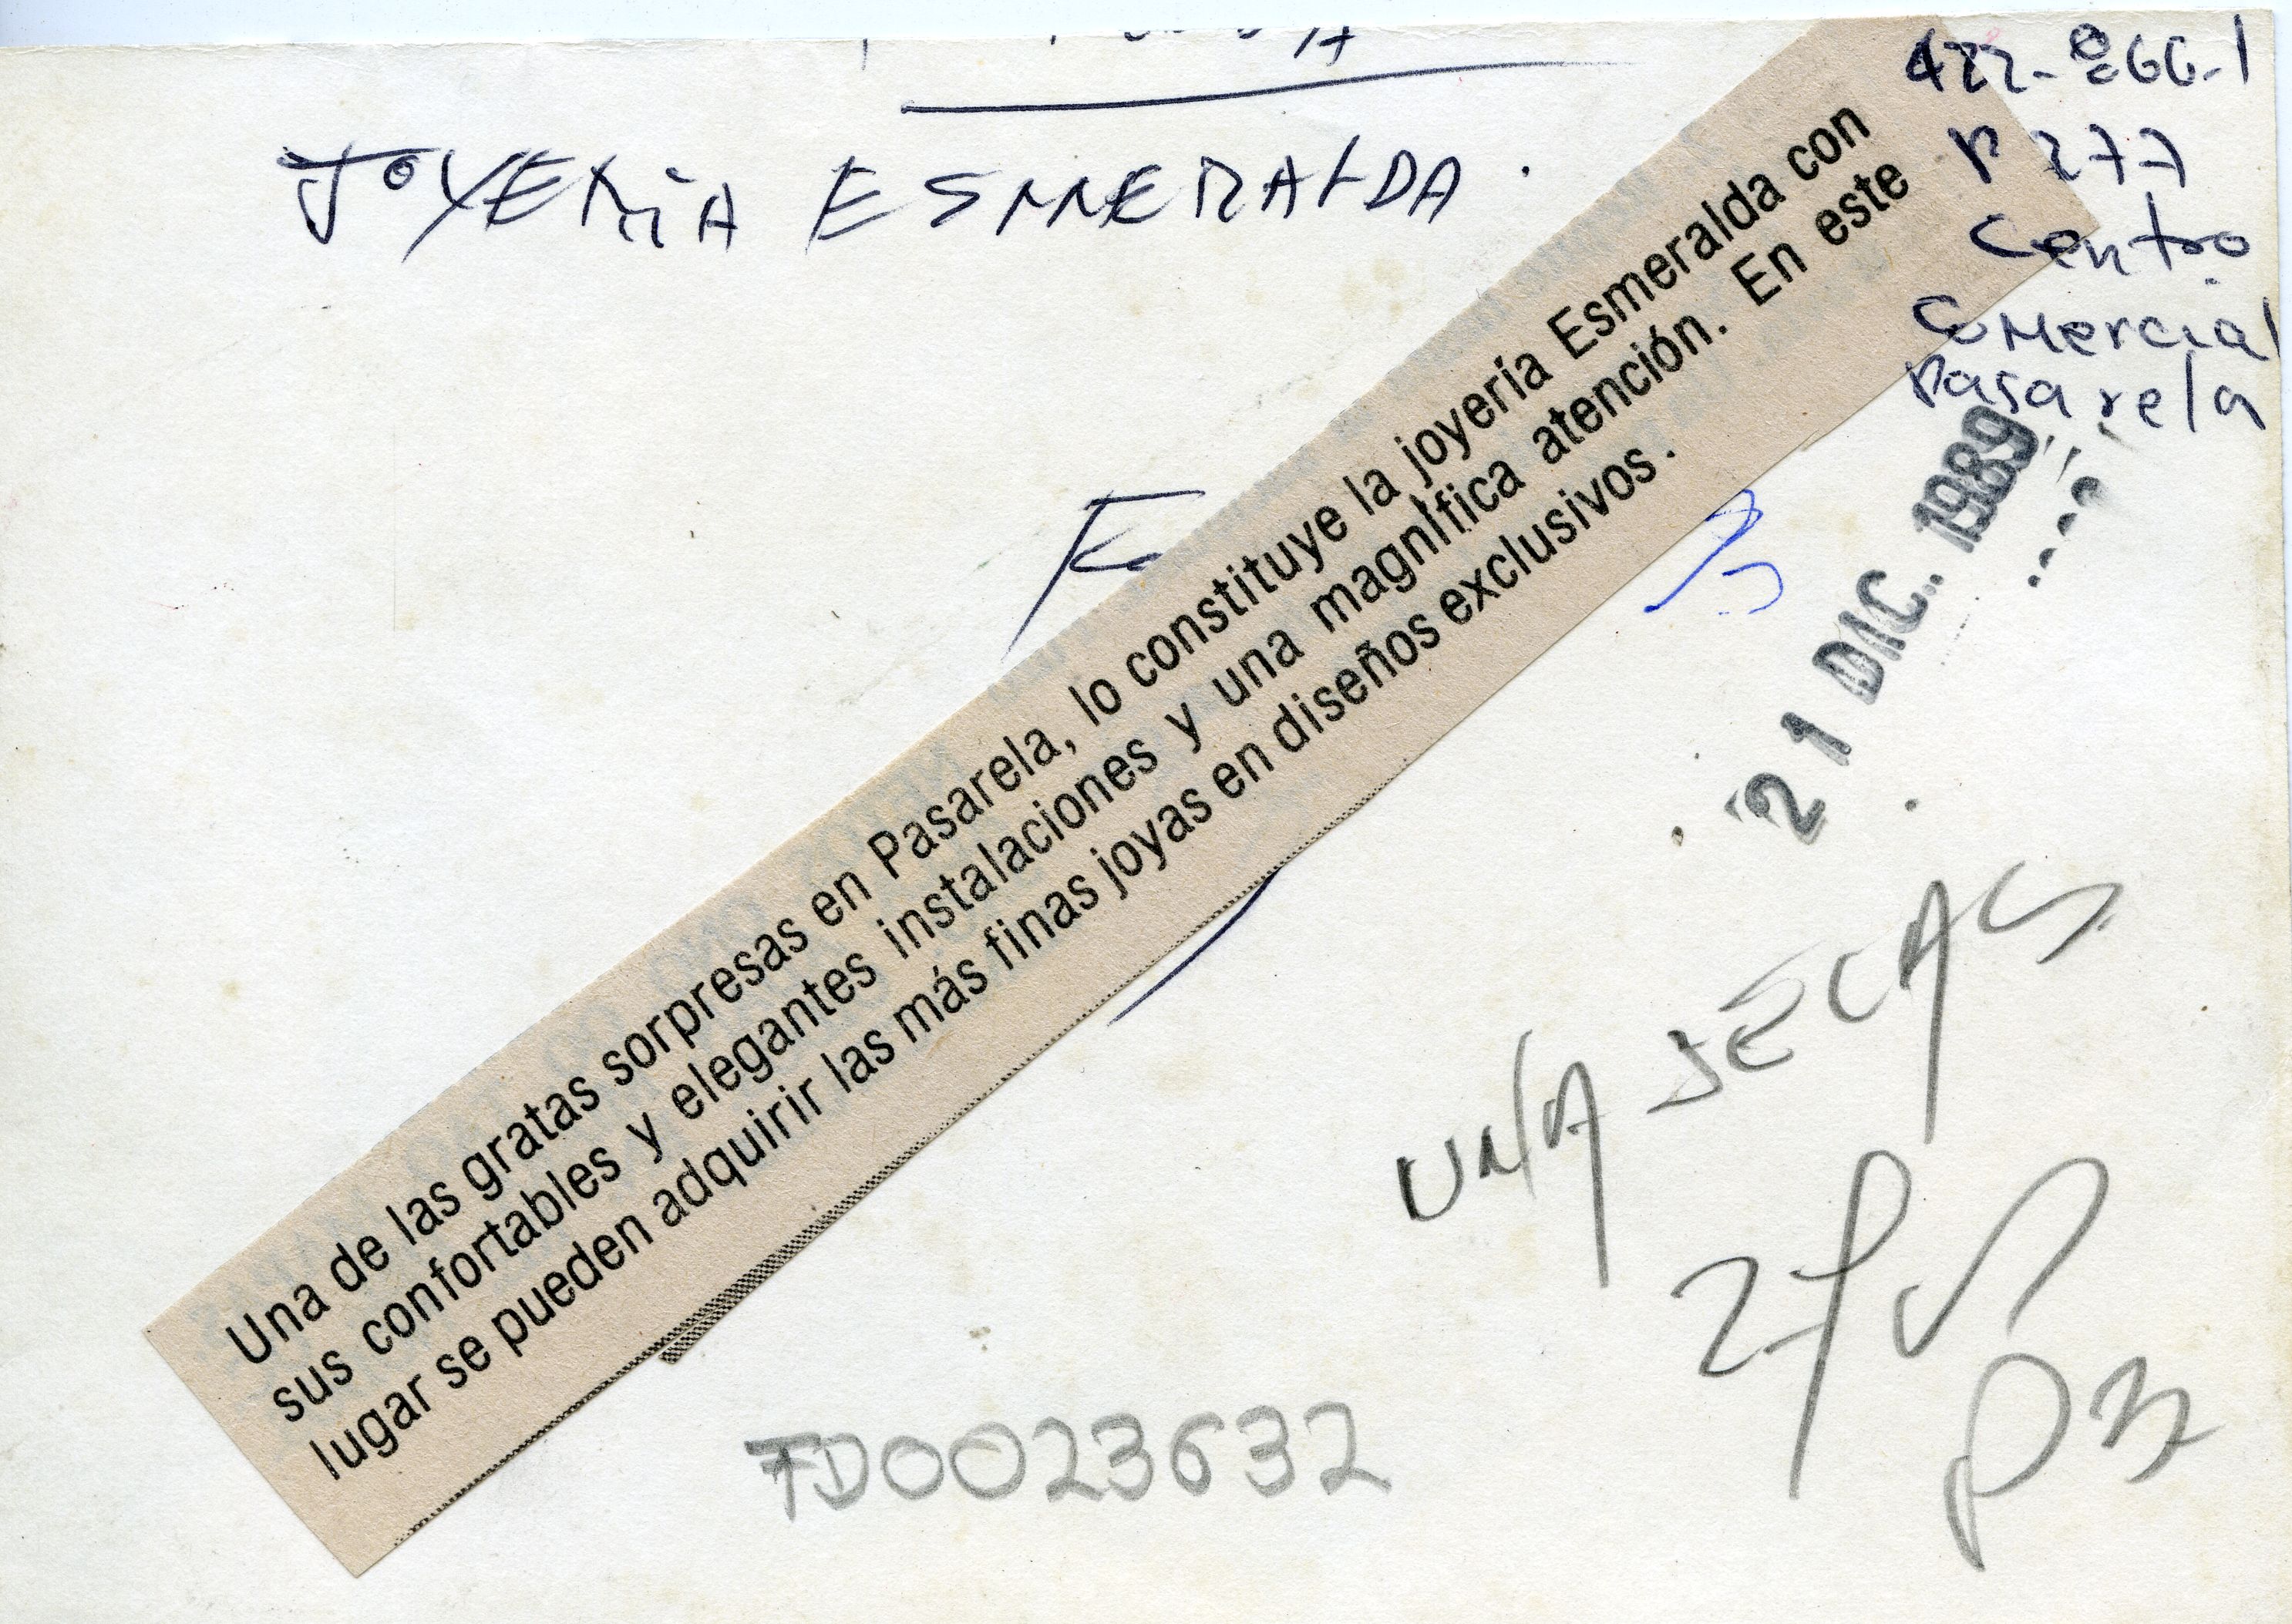 422-266-1
P 277
Centro
Comercial
Pasarela
JOYERIA ESMERALDA.
Una de las gratas sorpresas en Pasarela, lo constituye la joyería Esmeralda con
sus confortables y elegantes instalaciones y una magnífica atención. En este
lugar se pueden adquirir las más finas joyas en diseños exclusivos.
21 DIC. 1989
UNA
FD0023632